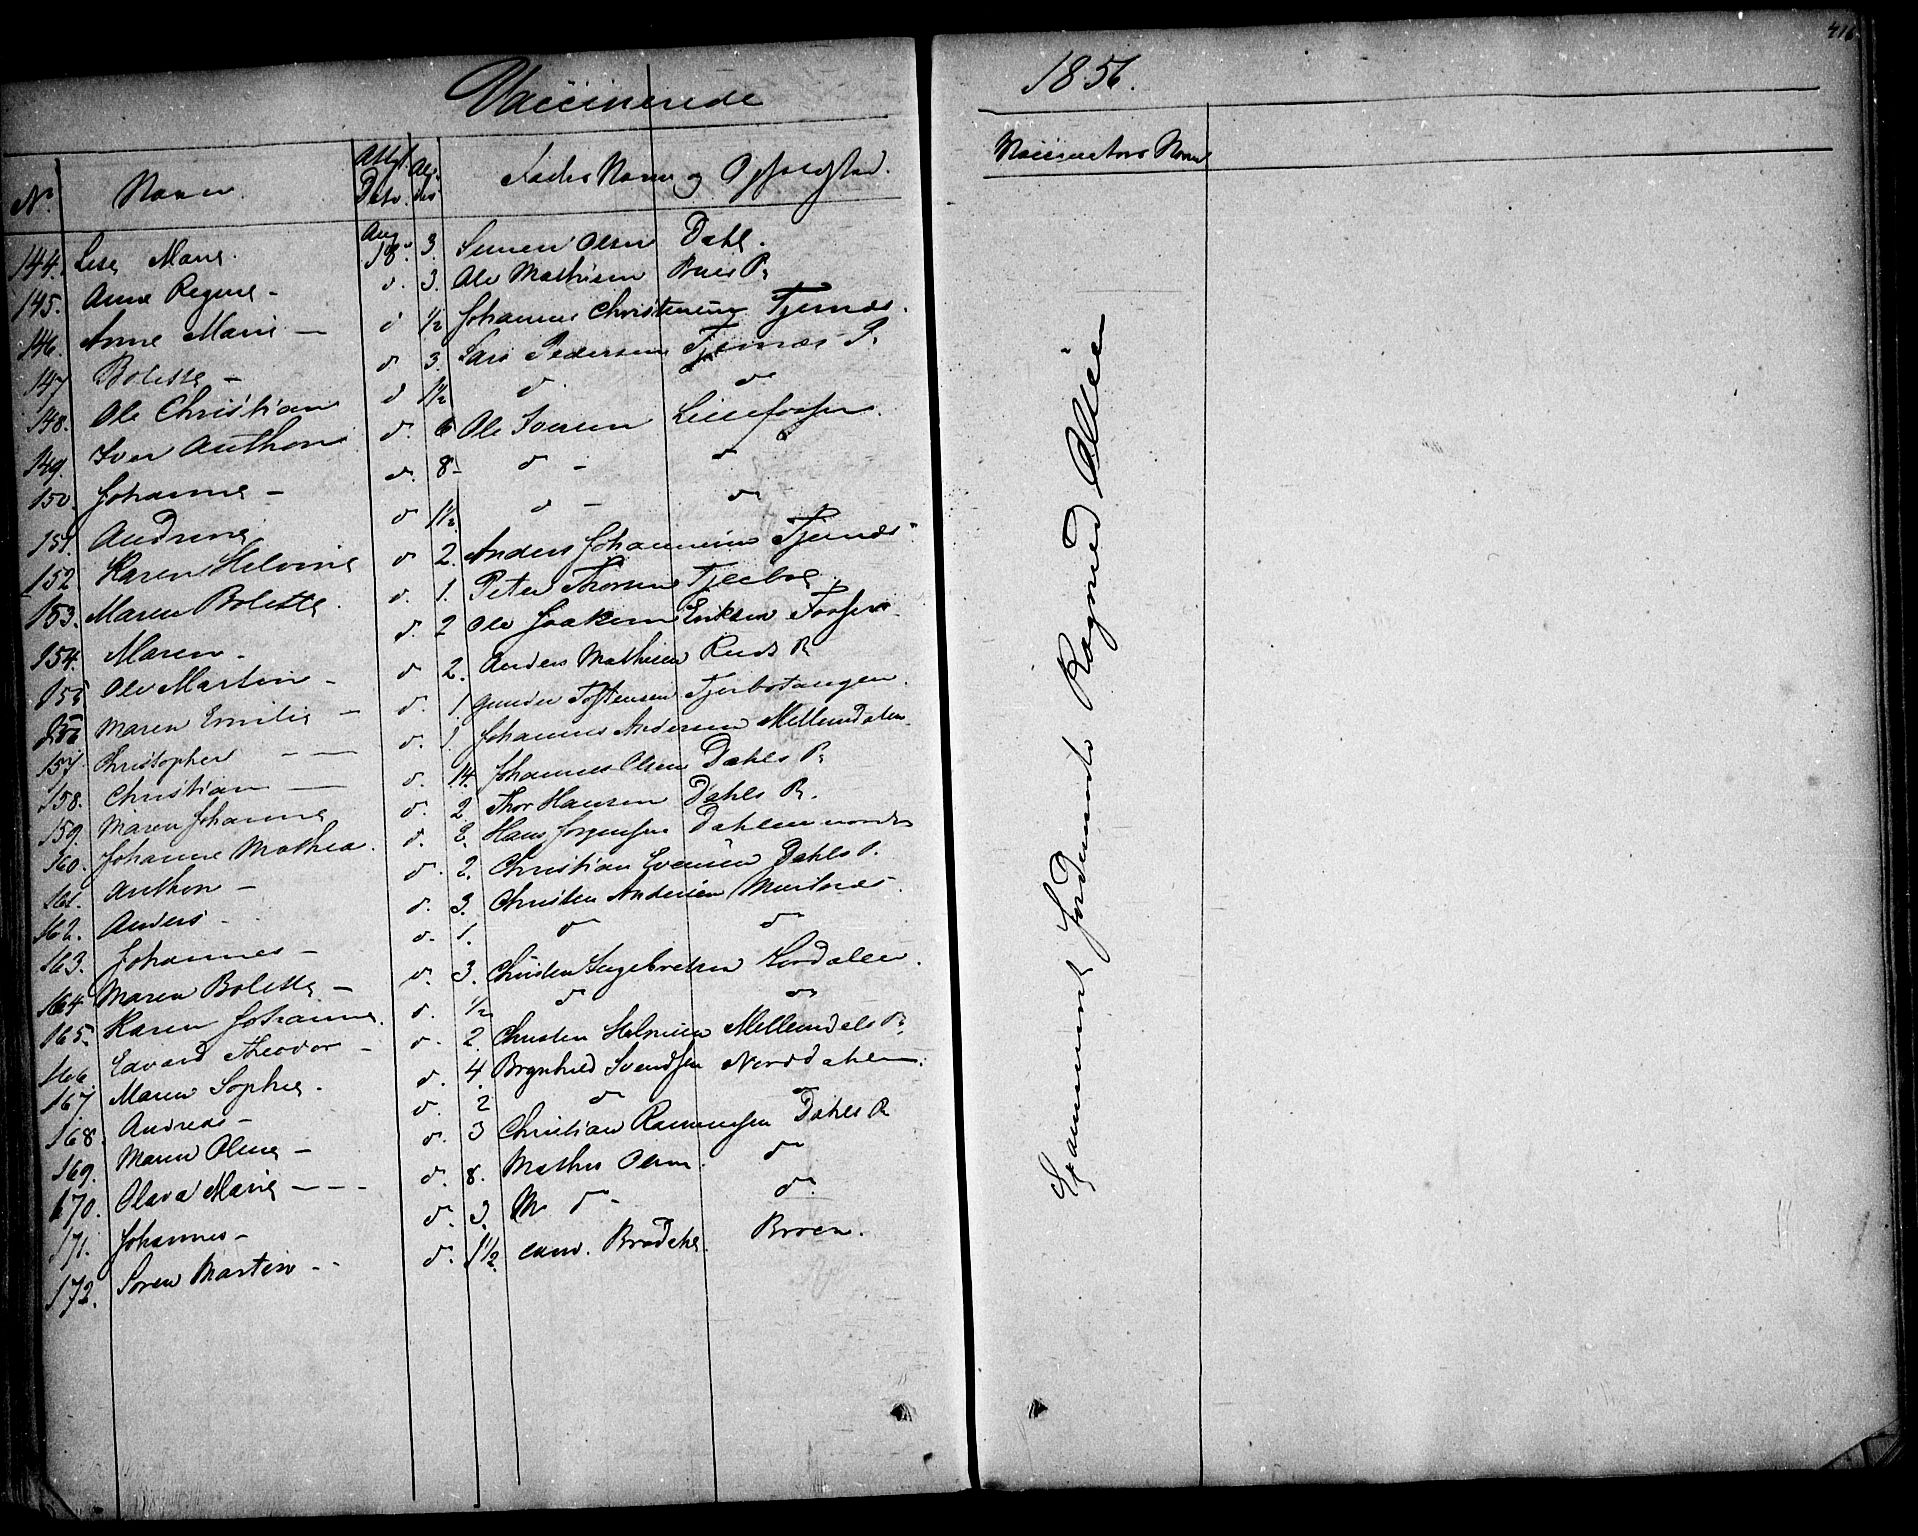 Vaccinerede 1856.
416
No. Navn. Att. Dato. Al- der Faders Navn og Opholdsted. Vaccinators Navn
144. Lise Marie. Aug 18. 3 Simen Olsen Dahl.
145. Anne Regine - d. 3. Ole Mathisen Rues P.
146. Anne Marie - d 1/2 Johannes Christensen Tjernæs.
147 Bolette - d. 3. Lars Pedersen Tjernæs P.
148. Ole Christian d 1 1/2 d. d
149. Iver Anthon d. 6 Ole Iversen Lillefossen.
150. Johanne - d. 8 - d - d
151. Andrine d 1 1/2. d - d
152. Karen Helvine d 2. Anders Johannesen Tjernæs.
153. Maren Bolette. d. 1. Peter Thorsen Tjerbo
154. Maren - d. 2 Ole Joakim Eriksen Fossen
155 Ole Martin - d 2. Anders Mathisen Ruds P.
156 Maren Emilie - d. 1 Gunder Tostensen Tjerbotangen.
157. Christopher - - d. 1. Johannes Andersen Mellemdalen
158. Christian - d. 14. Johannes Olsen Dahls P.
159. Maren Johanne d. 2. Thor Hansen Dahls P.
160. Johanne Mathea. d. 2. Hans Jørgensen Dahlen nordre
161. Anthon - d. 2. Christian Evensen Dahls P.
162. Anders - d. 3. Christen Andersen
163. Johannes - d. 1. d d
164 Maren Bolette - d. 3. Christen Ingebretsen Nordalen.
165. Karen Johanne. d. 1/2 d d
166. Edvard Theodor - d. 2. Christen Helgesen Mellemdals P.
167. Maren Sophie. d. 4. Brynhild Svendsen Norddahlen.
168. Andreas - d. 2 d d
169. Maren Oline - d. 3 Christian Rasmussen Dahls P.
170. Olava Marie - - - d. 8. Mathis Olsen. d
171. Johannes - d. 3. M d - d.
172. Søren Martin - - d. 1 1/2. Enw. Brodahl. Broen.
Examineret Jordemoder Ragnild Olsen